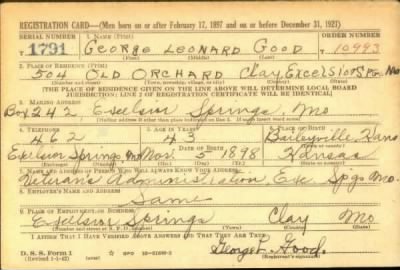 REGISTRATION CARD—(Men born on or after February 17, 1897 and on or before December 31, 1921)
SERIAL NUMBER 1. NAME (Print) ORDER NUMBER
T 1791 GEORGE LEONARD GOOD 10993
(First) (Middle) (Last)
2. PLACE OF RESIDENCE (Print)
504 OLD ORCHARD Clay, Excelsior Sp Mo
(Number and street) (Town, township, village, or city) (County) (State)
[THE PLACE OF RESIDENCE GIVEN ON THE LINE ABOVE WILL DETERMINE LOCAL BOARD
JURISDICTION; LINE 2 OF REGISTRATION CERTIFICATE WILL BE IDENTICAL]
3. MAILING ADDRESS
Box 242, Excelsior Springs, Mo
[Mailing address if other than place indicated on line 2. If same insert word same]
4. TELEPHONE 5. AGE IN YEARS 6. PLACE OF BIRTH
462 43 Baileyville, Kans
DATE OF BIRTH
Excelsior Springs, Mo Nov 5 1898 Kansas
7. NAME AND ADDRESS OF PERSON WHO WILL ALWAYS KNOW YOUR ADDRESS
Veterans Administration, Exc Spgs Mo.
8. EMPLOYER'S NAME AND ADDRESS
Same
9. PLACE OF EMPLOYMENT OR BUSINESS
Excelsior Springs Clay Mo
(Number and street or R. F. D. number) (Town) (County) (State)
I AFFIRM THAT I HAVE VERIFIED ABOVE ANSWERS AND THAT THEY ARE TRUE.
George L. Good
D. S. S. Form 1
(Registrant's signature)